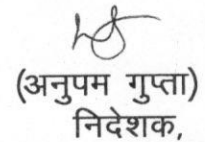 (अनुपम गुप्ता)
निदेशक,